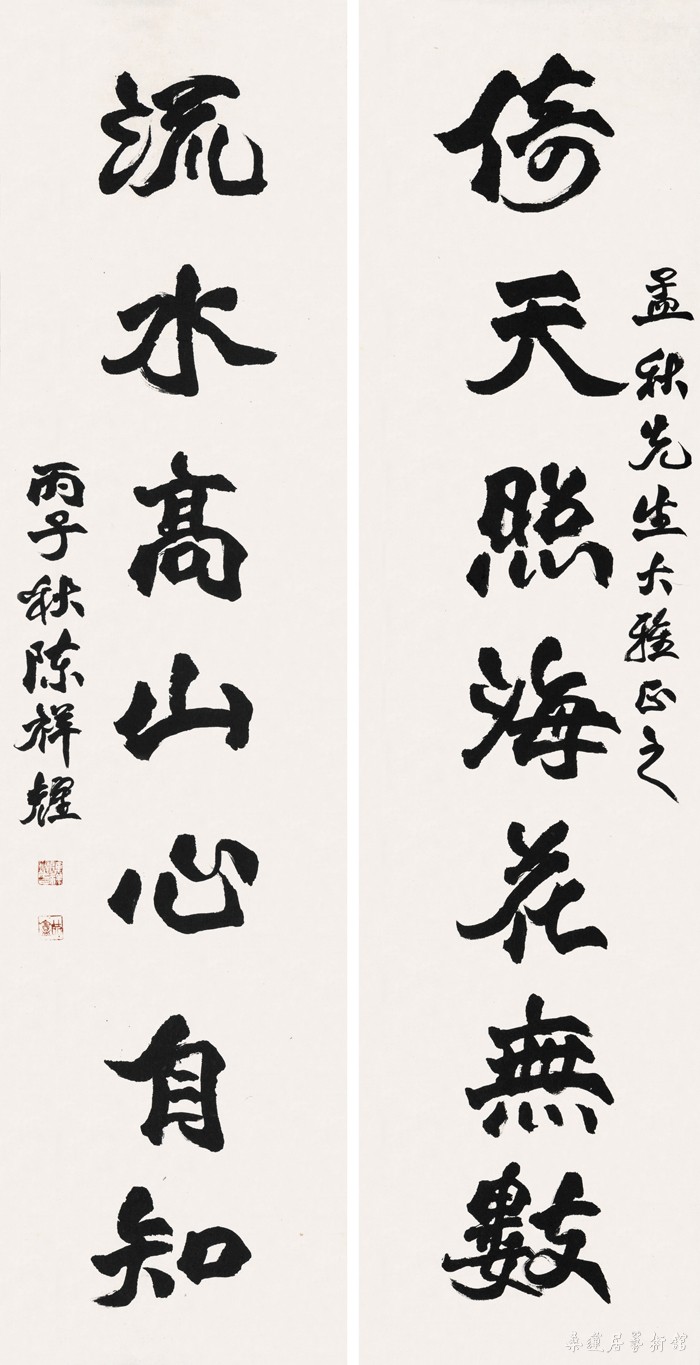 孟秋先生大雅正之
倚天照海花無數
流水高山心自知
丙子秋陈祥耀
桑蓮居藝術館